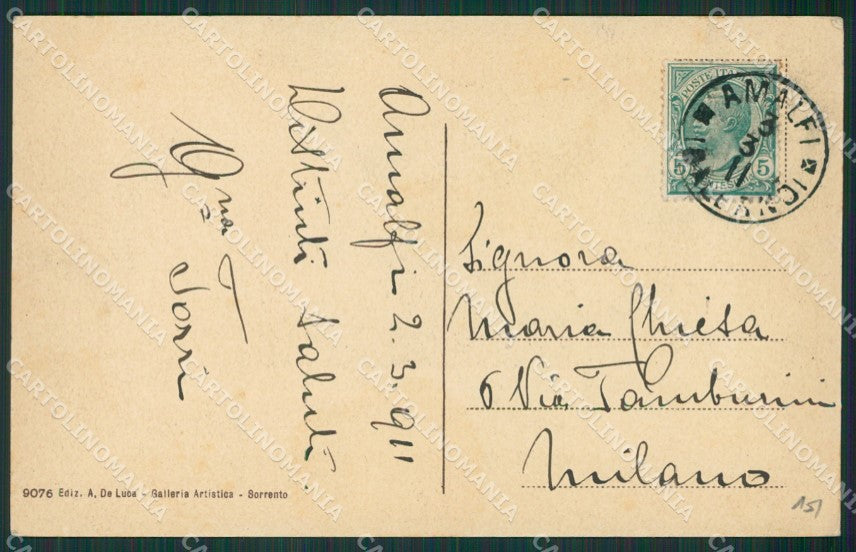 Amalfi 2.3.911
Distinti saluti.
Torri
POSTE ITA
5 5
AMALFI
3
3
11
Signora
Maria Chiesa
6 Via Tamburini
Milano
9076 Ediz. A. De Luca - Galleria Artistica - Sorrento
151
CARTOLINOMANIA